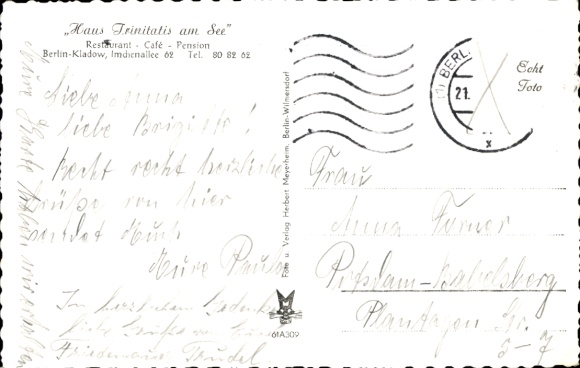 „Haus Trinitatis am See"
Restaurant - Café - Pension
Berlin-Kladow, Imchenallee 62 Tel. 80 82 62
Liebe Anna
liebe Brigitte!
Recht recht herzliche
Grüße von hier
sendet Euch
Eure Paula
Im herzlichem Gedenken
liebe Grüße
Friedemann Trudel
Foto u. Verlag Herbert Meyerheim, Berlin-Wilmersdorf
61A309
BERL
21.
x
Echt
Foto
Frau
Anna Forner
Potsdam-Babelsberg
Plantagen Str.
5-7